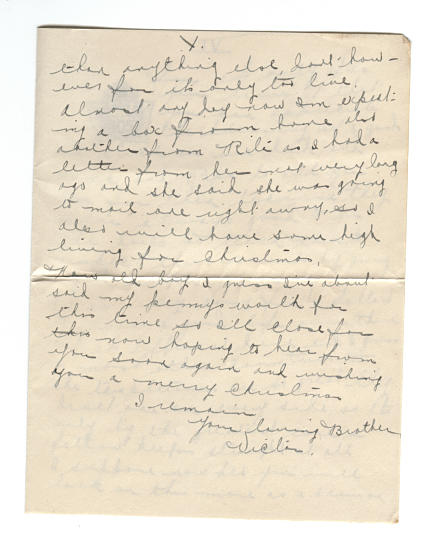 V.
than anything else, don't how-
ever for its only too live.
Almost any day now Im expect-
ing a box from home also
another from Rita as I had a
letter from her not very long
ago and she said she was going
to mail one right away, so I
also will have some high
living for Christmas.
old boy I guess Ive about
said my pennys worth for
this time so Ill close for
this now hoping to hear from
you soon again and wishing
you a merry Christmas
I remain
Your loving Brother
Victor.